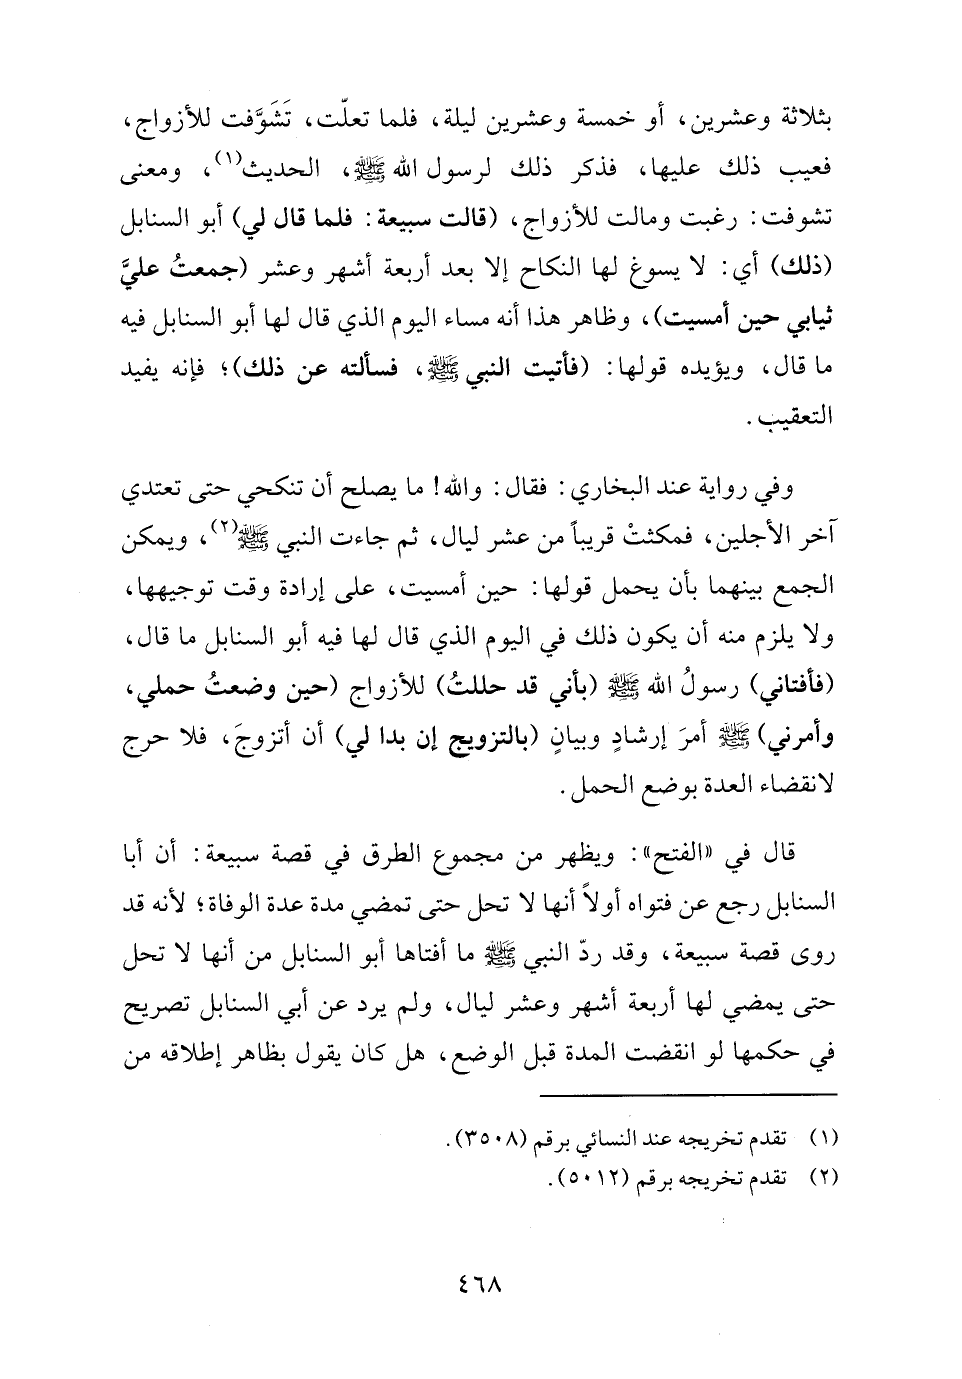 بثلاثة وعشرين، أو خمسة وعشرين ليلة، فلما تعلّت، تَشَوَّفت للأزواج،
فعيب ذلك عليها، فذكر ذلك لرسول الله ﷺ، الحديث(١)، ومعنى
تشوفت: رغبت ومالت للأزواج، (قالت سبيعة: فلما قال لي) أبو السنابل
(ذلك) أي: لا يسوغ لها النكاح إلا بعد أربعة أشهر وعشر (جمعتُ عليَّ
ثيابي حين أمسيت)، وظاهر هذا أنه مساء اليوم الذي قال لها أبو السنابل فيه
ما قال، ويؤيده قولها: (فأتيت النبي ﷺ، فسألته عن ذلك)؛ فإنه يفيد
التعقيب.
وفي رواية عند البخاري: فقال: والله! ما يصلح أن تنكحي حتى تعتدي
آخر الأجلين، فمكثتْ قريباً من عشر ليال، ثم جاءت النبي ﷺ(٢)، ويمكن
الجمع بينهما بأن يحمل قولها: حين أمسيت، على إرادة وقت توجيهها،
ولا يلزم منه أن يكون ذلك في اليوم الذي قال لها فيه أبو السنابل ما قال،
(فأفتاني) رسولُ الله ﷺ (بأني قد حللتُ) للأزواج (حين وضعتُ حملي،
وأمرني) ﷺ أمرَ إرشادٍ وبيانٍ (بالتزويج إن بدا لي) أن أتزوجَ، فلا حرج
لانقضاء العدة بوضع الحمل.
قال في «الفتح»: ويظهر من مجموع الطرق في قصة سبيعة: أن أبا
السنابل رجع عن فتواه أولاً أنها لا تحل حتى تمضي مدة عدة الوفاة؛ لأنه قد
روى قصة سبيعة، وقد ردّ النبي ﷺ ما أفتاها أبو السنابل من أنها لا تحل
حتى يمضي لها أربعة أشهر وعشر ليال، ولم يرد عن أبي السنابل تصريح
في حكمها لو انقضت المدة قبل الوضع، هل كان يقول بظاهر إطلاقه من
(١) تقدم تخريجه عند النسائي برقم (٣٥٠٨).
(٢) تقدم تخريجه برقم (٥٠١٢).
٤٦٨